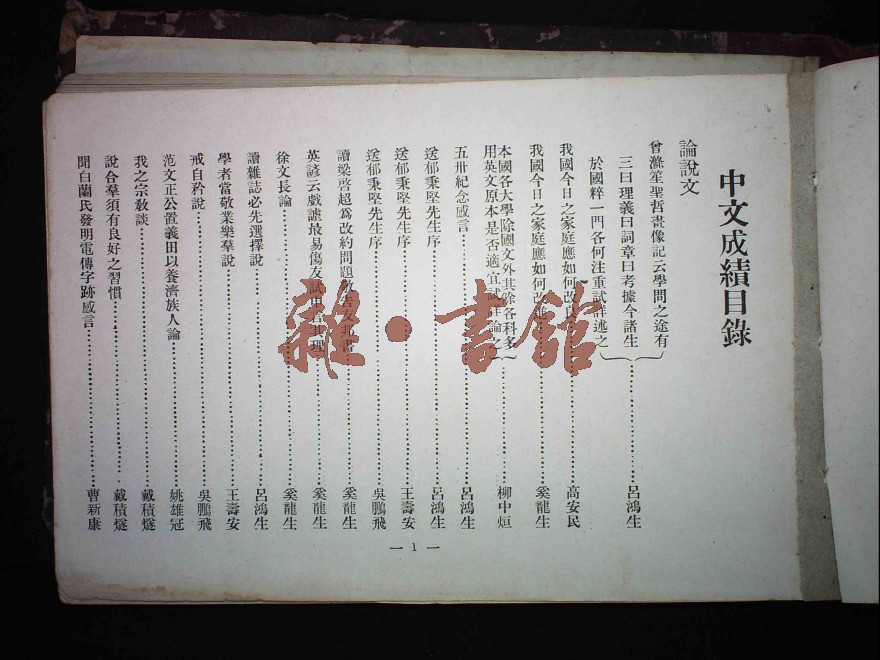 中文成績目錄
論說文
曾滌笙聖哲畫像記云學問之途有
三曰理義曰詞章曰考據今諸生
於國粹一門各何注重試詳述之……呂鴻生
我國今日之家庭應如何改……高安民
我國今日之家庭應如何改……奚龍生
本國各大學除國文外其餘各科多
用英文原本是否適宜試詳論之……柳中烜
五卅紀念感言……呂鴻生
送郁秉堅先生序……呂鴻生
送郁秉堅先生序……王壽安
送郁秉堅先生序……吳鵬飛
讀梁啓超爲改約問題敬告友邦書……奚龍生
英諺云戲謔最易傷友試申言其理……奚龍生
徐文長論……奚龍生
讀雜誌必先選擇說……呂鴻生
學者當敬業樂羣說……王壽安
戒自矜說……吳鵬飛
范文正公置義田以養濟族人論……姚雄冠
我之宗教談……戴積燧
說合羣須有良好之習慣……戴積燧
聞白蘭氏發明電傳字跡感言……曹新康
— 1 —
雜·書館